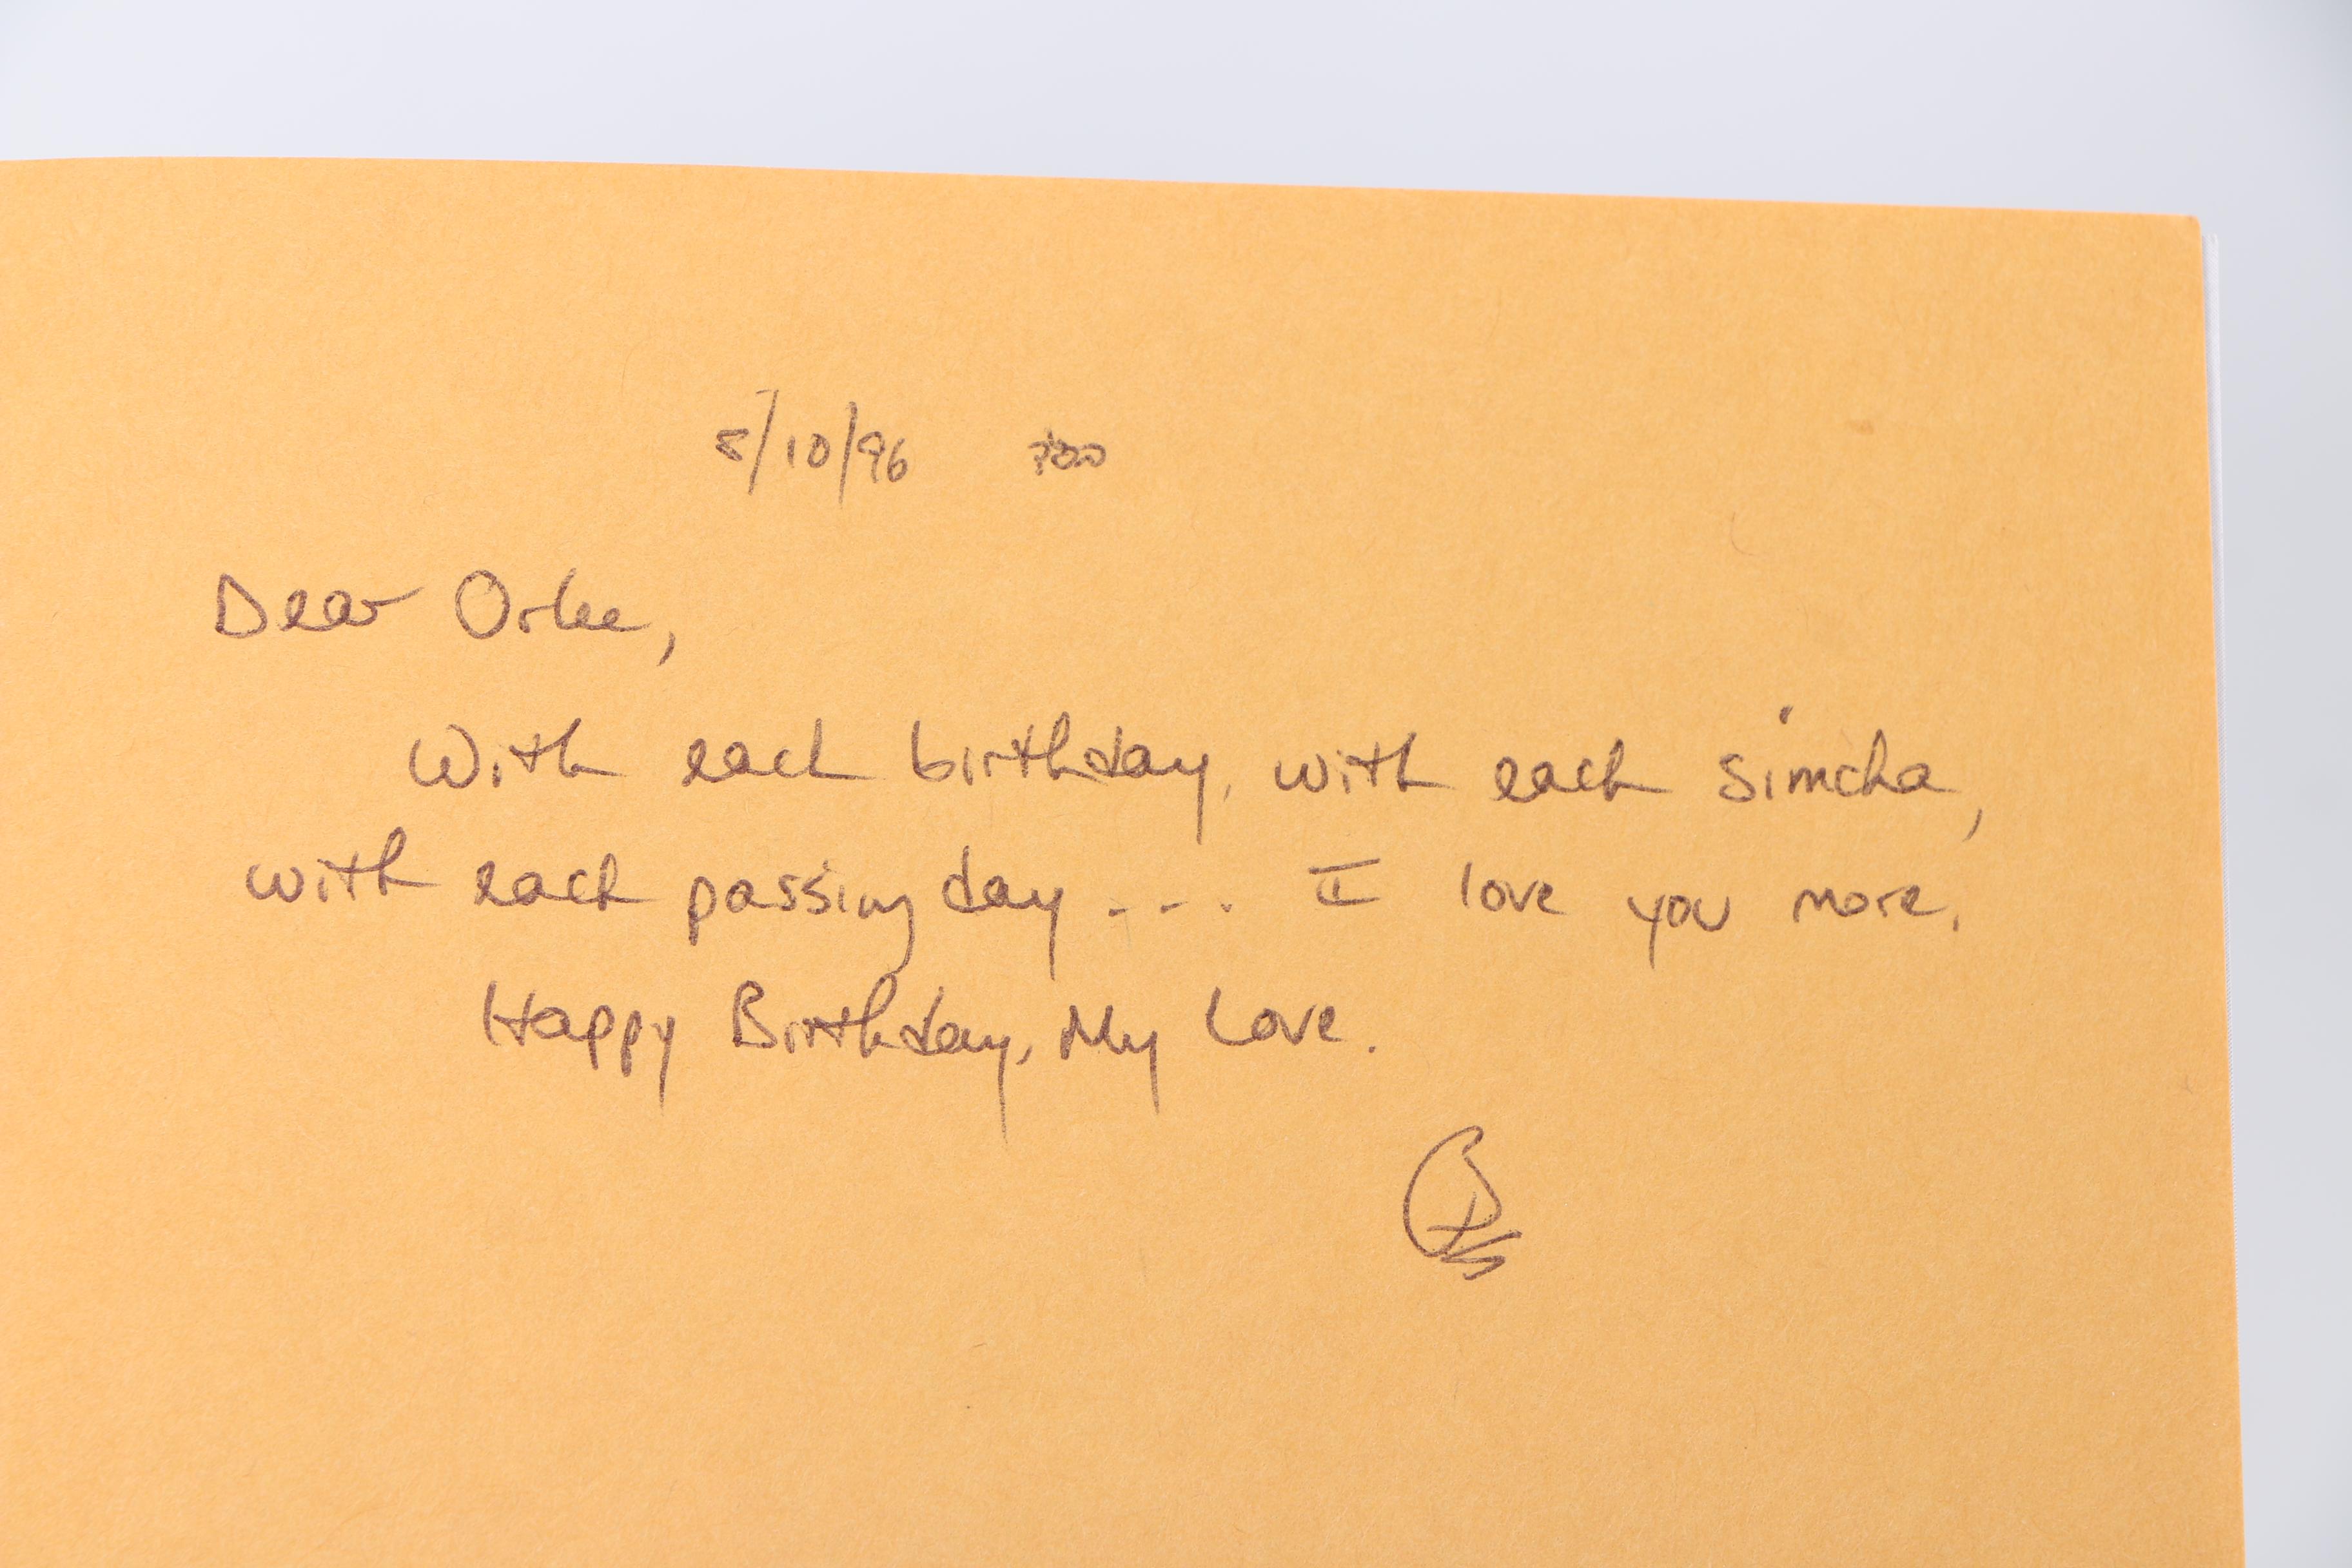 5/10/96
Dear Orlee,
With each birthday, with each simcha,
with each passing day.... I love you more.
Happy Birthday, My Love.